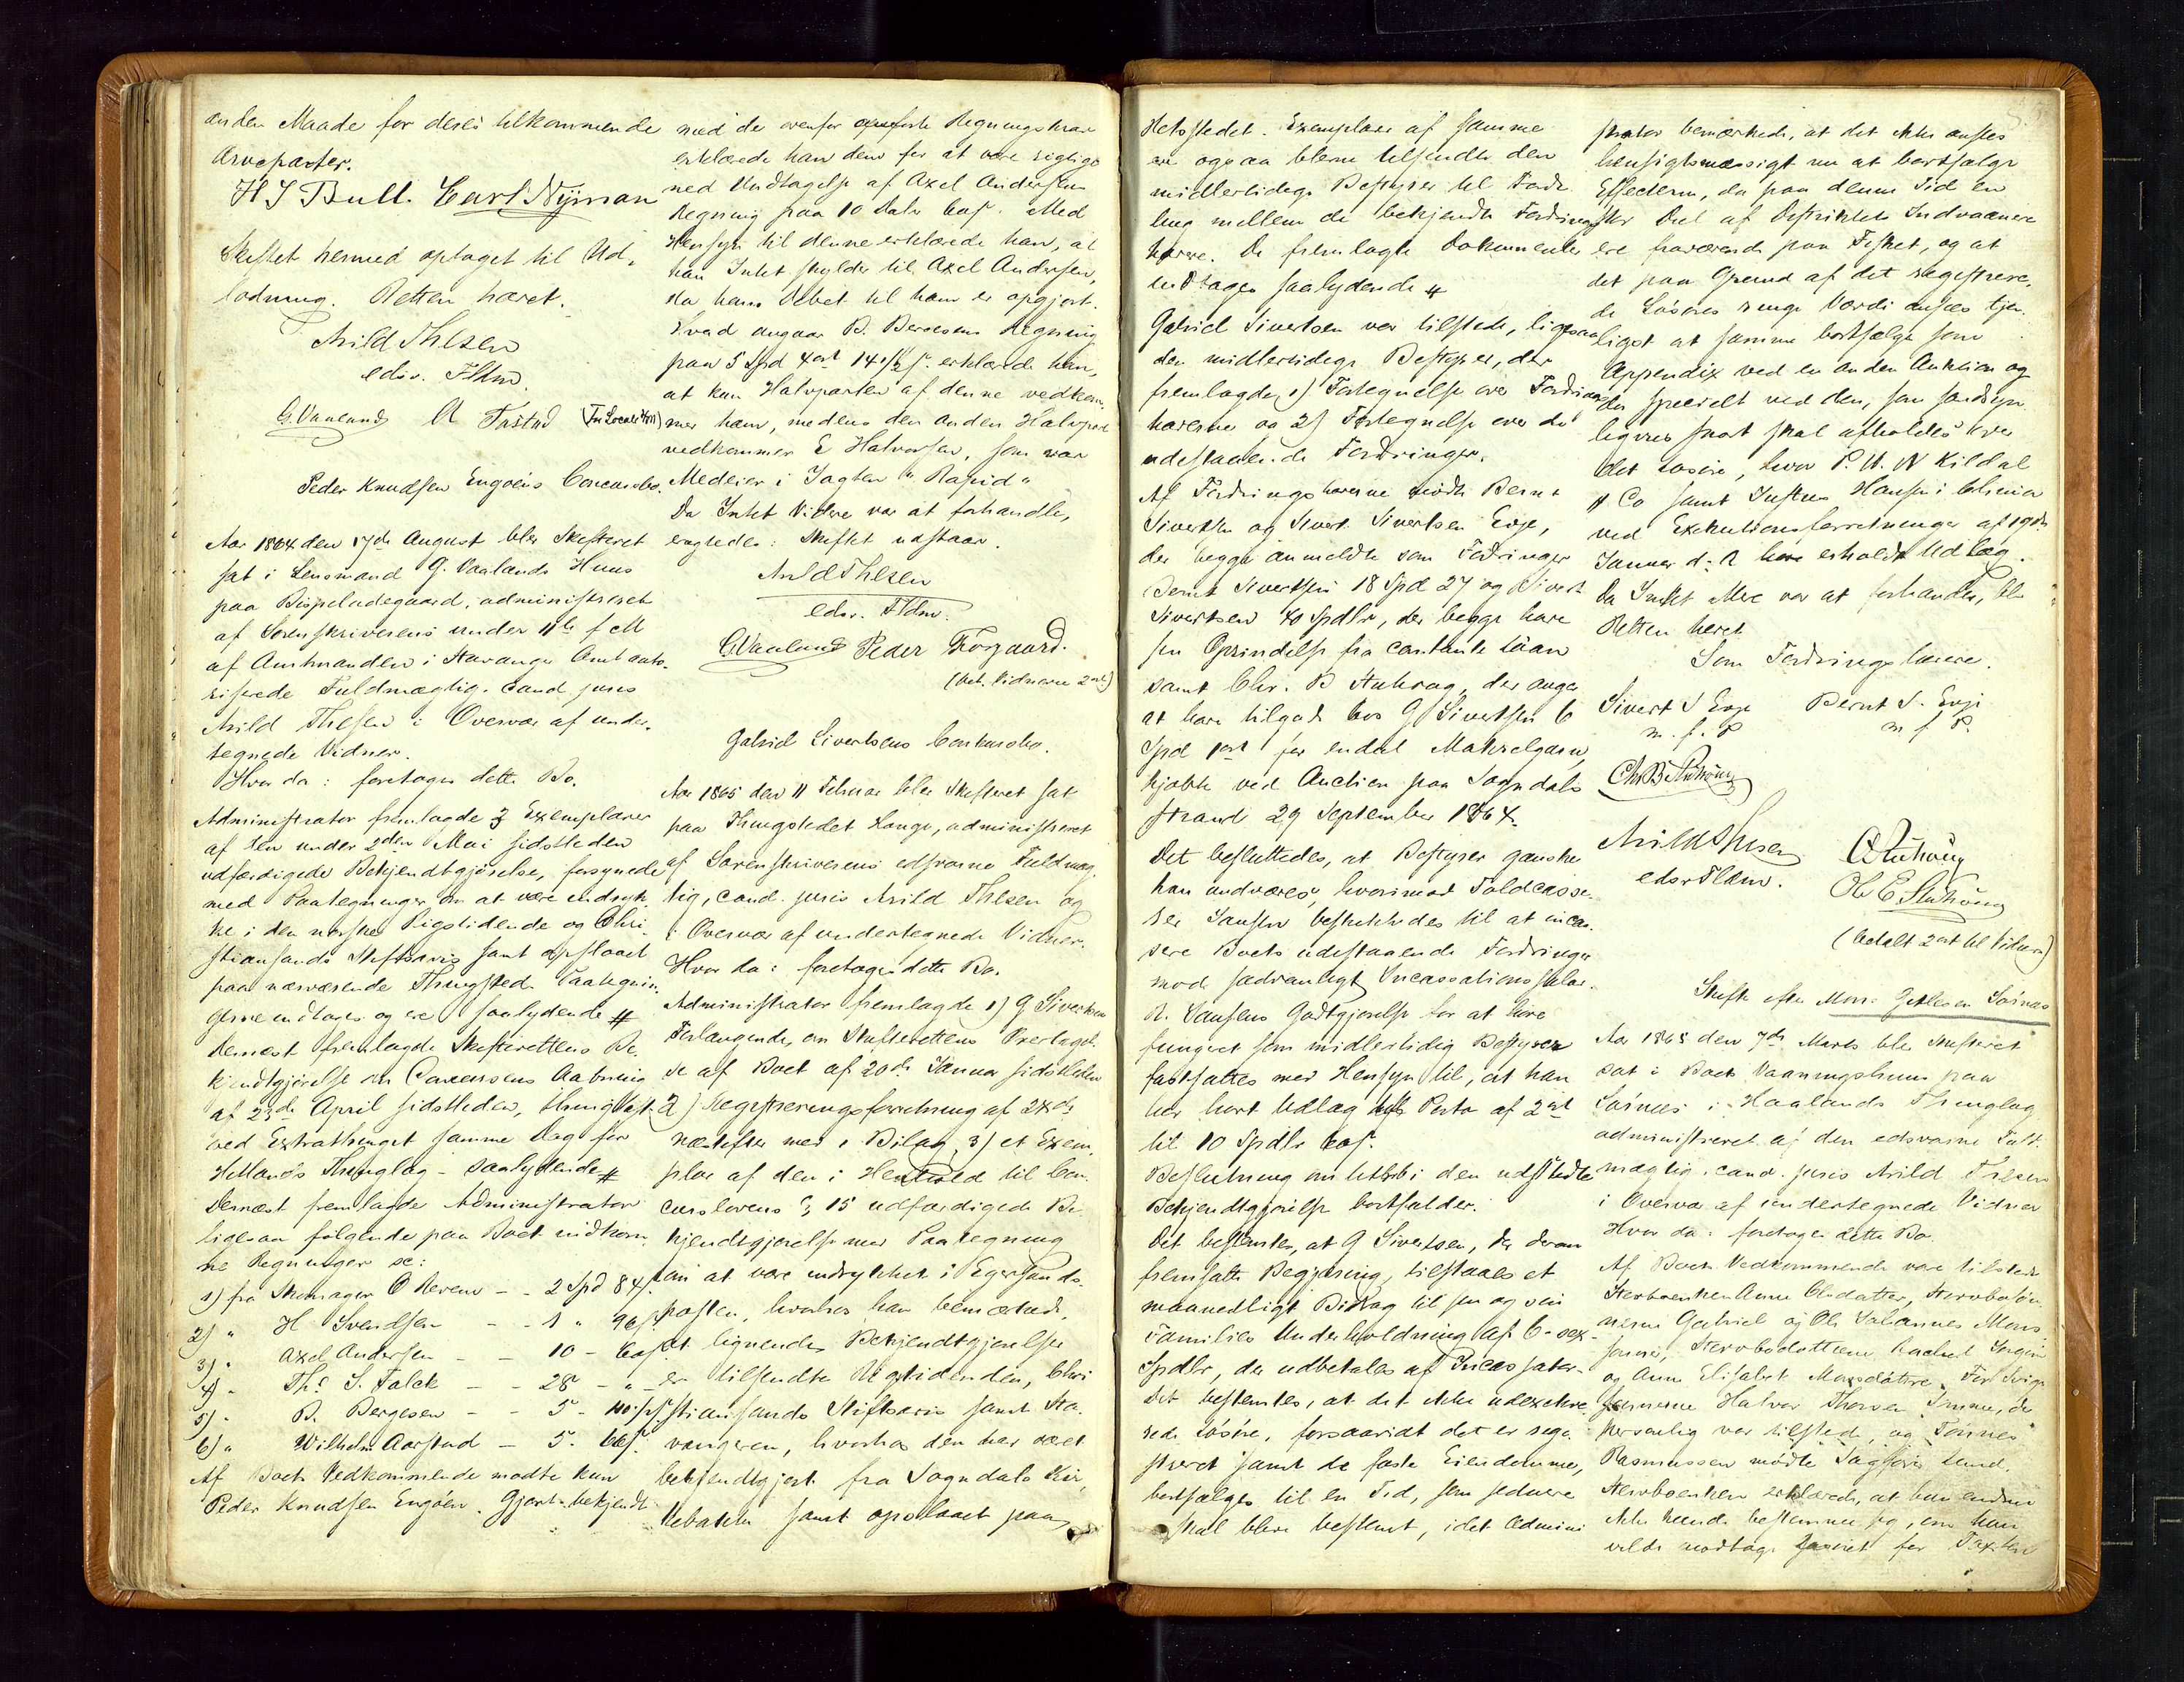 anden Maade for deres tilkommende
Arveparter.
H J Bull. Carl Nyman
Skiftet hermed optaget til Ud-
lodning. Retten hævet.
Arild Thesen
edsv. Fldm.
G. Vaaland A Tastad
Peder Knudsen Engøens Concursbo.
Aar 1864 den 17de August blev Skifteret
sat i Lensmand G. Vaalands Huus
paa Bispeladegaard, administreret
af Sorenskriverens under 11te f M
af Amtmanden i Stavanger Amt auto-
riserede Fuldmægtig. Cand juris
Arild Thesen i Overvær af under-
tegnede Vidner.
Hvor da: foretoges dette Bo.
Administrator fremlagde 3 Exemplarer
af den under 2den Mai sidstleden
udfærdigede Bekjendtgjørelse, forsynede
med Paategninger om at være indryk-
ke i den norske Rigstidende og Chri-
stiansands Stiftsavis samt opslaaet
paa nærværende Thingsted. Paategnin-
gerne indtages og ere saalydende #
Dernæst fremlagde Skifterettens Be-
kjendtgjørelse om Concursens Aabning
af 23de April sidstleden, thinglæst
ved Extrathinget samme Dag for
Hetlands Thinglag - saalydende #
Dernæst fremlagde Administrator
ligesaa følgende paa Boet indkom-
ne Regninger se:
1) fra Skomager O Reven - - 2 Spd 84 s.
2) " H Svendsen - - 1 " 96 s.
3) " Axel Andersen - - 10 - 60 s.
4) " Ths. S. Falck - - 28 - " -
5) " B. Bergesen - - 5 -
6) " Wilhelm Aarstad - 5.
Af Boets Vedkommende mødte kun
Peder Knudsen Engøen. Gjort bekjendt
med de ovenfor opførte Regningskrav
erklærede han dem for at være rigtige
med Undtagelse af Axel Andersens
Regning paa 10 Dalr 60 s. Med
Hensyn til denne erklærede han, at
han Intet skylder til Axel Andersen,
da hans Debet til ham er opgjort.
Hvad angaar B. Bergesens Regning
paa 5 Spd 4 ort 14 1/2 s. erklærede han,
at kun Halvparten af denne vedkom-
mer ham, medens den anden Halvpart
vedkommer E Halvorsen, som var
Medeier i Jagten "Rapid"
Da Intet Videre var at forhandle,
eragtedes: Skiftet udstaar.
Arild Thesen
edsv. Fldm.
G. Vaaland Peder Torgaard.
(bet. Vidnerne 2 ort)
Gabriel Sivertsens Concursbo.
Aar 1865 den 11 Februar blev Skifteret sat
paa Thingstedet Hauge, administreret
af Sorenskriverens edsvorne Fuldmæg-
tig, cand. juris Arild Thesen og
i Overvær af undertegnede Vidner.
Hvor da: foretoges dette Bo.
Administrator fremlagde 1) G Sivertsens
Forlangende om Skifterettens Overtagel-
se af Boet af 20de Januar sidstleden
2) Registreringsforretning af 24de
næstefter med 1 Bilag, 3) et Exem-
plar af den i Henhold til Con-
curslovens § 15 udfærdigede Be-
kjendtgjørelse med Paategning
om at være indrykket i Egersunds-
posten, hvorhos han bemærkede,
at lignende Bekjendtgjørelse
er tilsendte Rigstidenden, Chri-
stiansands Stiftsavis samt Sta-
vangeren, hvorhos den har været
bekjendtgjort fra Sogndals Kir-
kebakke samt opslaaet paa
Retsstedet. Exemplarer af samme
ere ogsaa blevne tilsendte den
midlertidige Bestyrer til Forde-
ling mellem de bekjendte Fordrings-
havere. De fremlagte Dokumenter
indtages saalydende #
Gabriel Sivertsen var tilstede, ligesaa
den midlertidige Bestyrer, der
fremlagde 1) Fortegnelse over Fordrings-
haverne og 2) Fortegnelse over de
udestaaende Fordringer.
Af Fordringshaverne mødte Bernt
Sivertsen og Sivert Sivertsen Evje,
der begge anmeldte som Fordringer
Bernt Sivertsen 18 Spd 27 og Sivert
Sivertsen 40 Spdlr, der begge have
sin Oprindelse fra contante Laan
samt Chr. B Stuhaug, der angav
at have tilgode hos G Sivertsen 6
Spd 1 ort for endel Makrelgarn,
kjøbte ved Auction paa Sogndals
strand 29 September 1864.
Det besluttedes, at Bestyrer ganske
kan undværes, hvorimod Toldcasse-
rer Jansen beskikkedes til at incas-
sere Boets udestaaende Fordringer
mod sædvanligt Incassationssalær.
R. Jansens Godtgjørelse for at have
fungeret som midlertidig Bestyrer
fastsattes med Hensyn til, at han
har havt Udlæg til Porto af 2 ort
til 10 Spdlr 60 s.
Beslutning om Udbud i den udstedte
Bekjendtgjørelse bortfalder.
Det bestemtes, at G Sivertsen, der derom
fremsatte Begjæring, tilstaaes et
maanedligt Bidrag til sin og sin
Families Underholdning af 6 - sex -
Spdlr, der udbetales af Incassator.
Det bestemtes, at det ikke udexekve-
rede Løsøre, forsaavidt det er regi-
streret samt de faste Eiendomme,
bortsælges til en Tid, som sednere
skal blive bestemt, idet Admini
strator bemærkede, at det ikke ansees
hensigtsmæssigt nu at bortsælge
Effecterne, da paa denne Tid en
stor Deel af Distriktets Indvaanere
ere fraværende paa Fisket, og at
det paa Grund af det registrere-
de Løsøres ringe Værdi ansees tjen-
ligst at samme bortsælges som
Appendix ved en anden Auktion og
da specielt ved den, som sandsyn-
ligvis snart skal afholdes over
det Løsøre, hvor P. U. N Kildal
& Co samt Justus Hansen i Chr.ia
ved Exekutionsforretninger af 19de
Januar d. A have erholdt Udlæg.
Da Intet Mere var at forhandle, blev
Retten hævet.
Som Fordringshavere.
Sivert S Evje Bernt S. Evje
m. f. P m f P.
Chr B Stuhaug
Arild Thesen
edsv Fldm.
(betalt 2 ort til Vidnerne)
Skifte efter Mons Gitlesen Sørnæs
Aar 1865 den 7de Marts blev Skifteret
sat i Boets Vaaningshuus paa
Sørnæs i Haalands Thinglag
administreret af den edsvorne Fuld-
mægtig cand. juris Arild Thesen
i Overvær af undertegnede Vidner
Hvor da: foretoges dette Bo.
Af Boets Vedkommende vare tilstede
Stervboenken Anne Olsdatter, Stervbosøn-
nerne Gabriel og Ole Johannes Mons-
sønner, Stervbodøttrene Rachel Ingeri
og Anne Elisabet Monsdøttre. For Svige-
sønnerne Halvor Thorsen, der
personlig var tilstede, og Tønnes
Rasmussen mødte Sagfører Lund.
Stervboenken erklærede, at hun endnu
ikke kunde bestemme sig, om hun
vilde modtage Jordet for Taxten